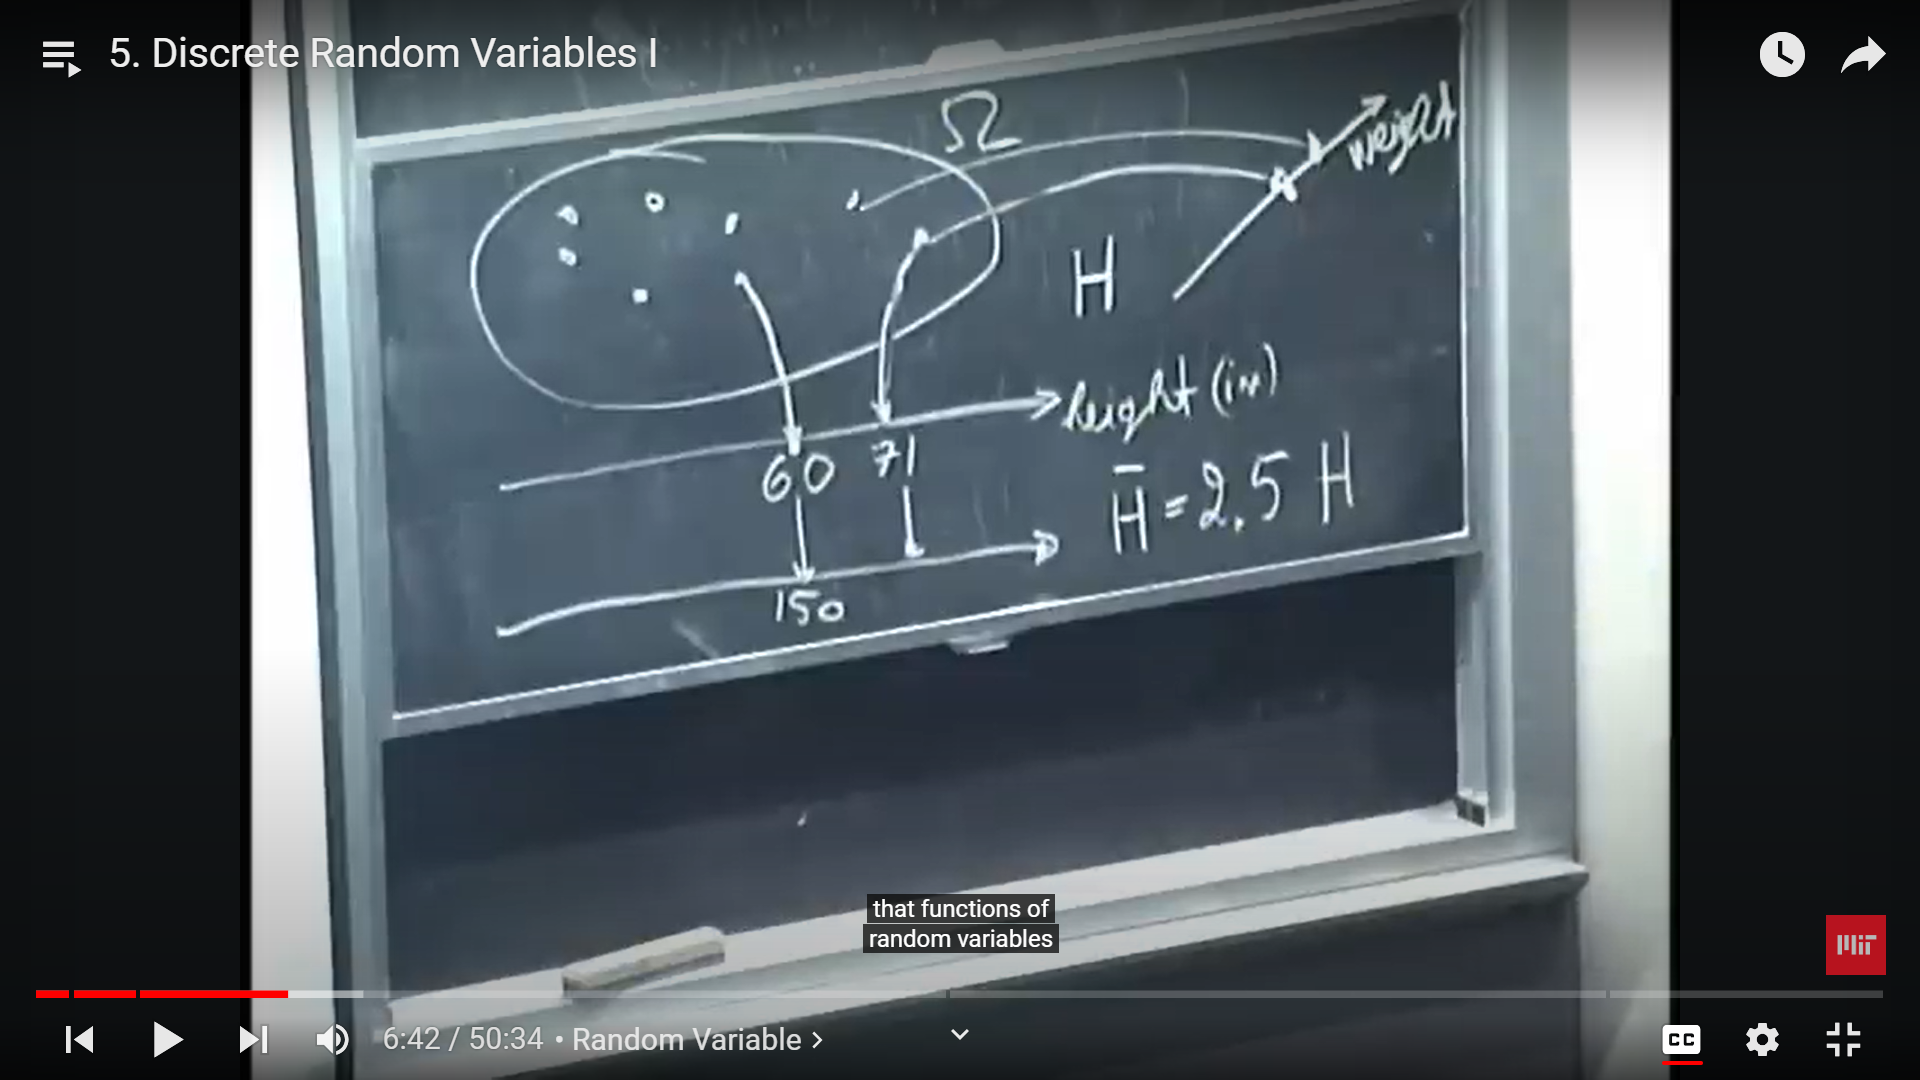 5. Discrete Random Variables I
Ω
weight
H
height (in)
60
71
H̅ = 2.5 H
150
that functions of
random variables
MIT
6:42 / 50:34 • Random Variable
CC